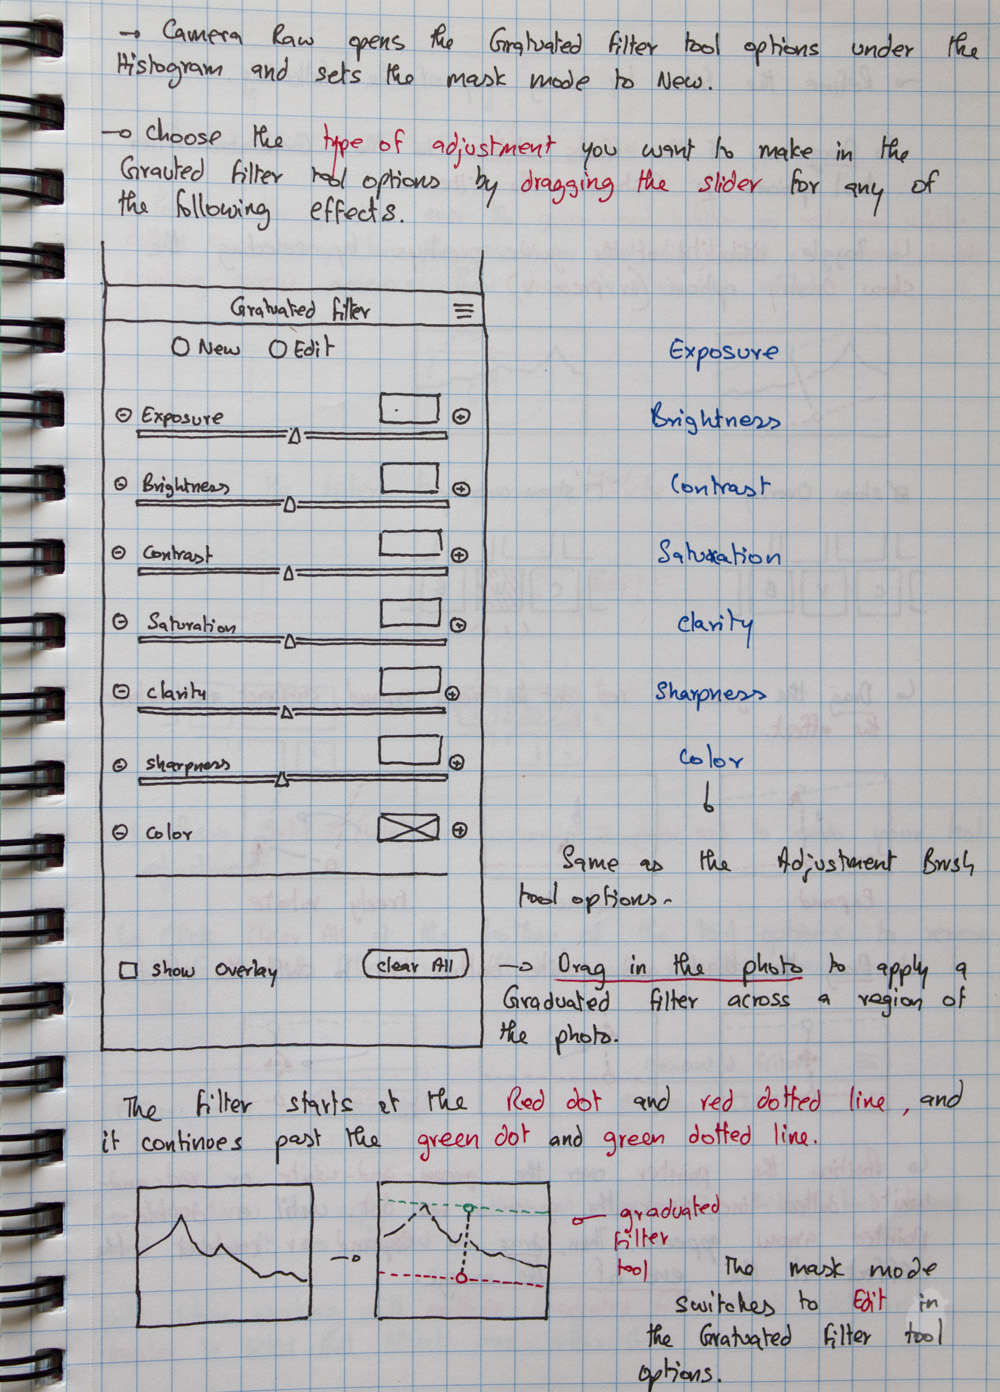 → Camera Raw opens the Gratuated filter tool options under the
Histogram and sets the mask mode to New.
→ choose the type of adjustment you want to make in the
Grauted filter tool options by dragging the slider for any of
the following effects.
Gratuated filter
New Edit
Exposure
Brightness
Contrast
Saturation
clarity
sharpness
color
show overlay
clear All
Exposure
Brightness
Contrast
Saturation
clarity
Sharpness
color
Same as the Adjustment Brush
tool options.
→ Drag in the photo to apply a
Graduated filter across a region of
the photo.
The filter starts at the Red dot and red dotted line, and
it continoes past the green dot and green dotted line.
graduated
filter
tool
The mask mode
switches to Edit in
the Gratuated filter tool
options.